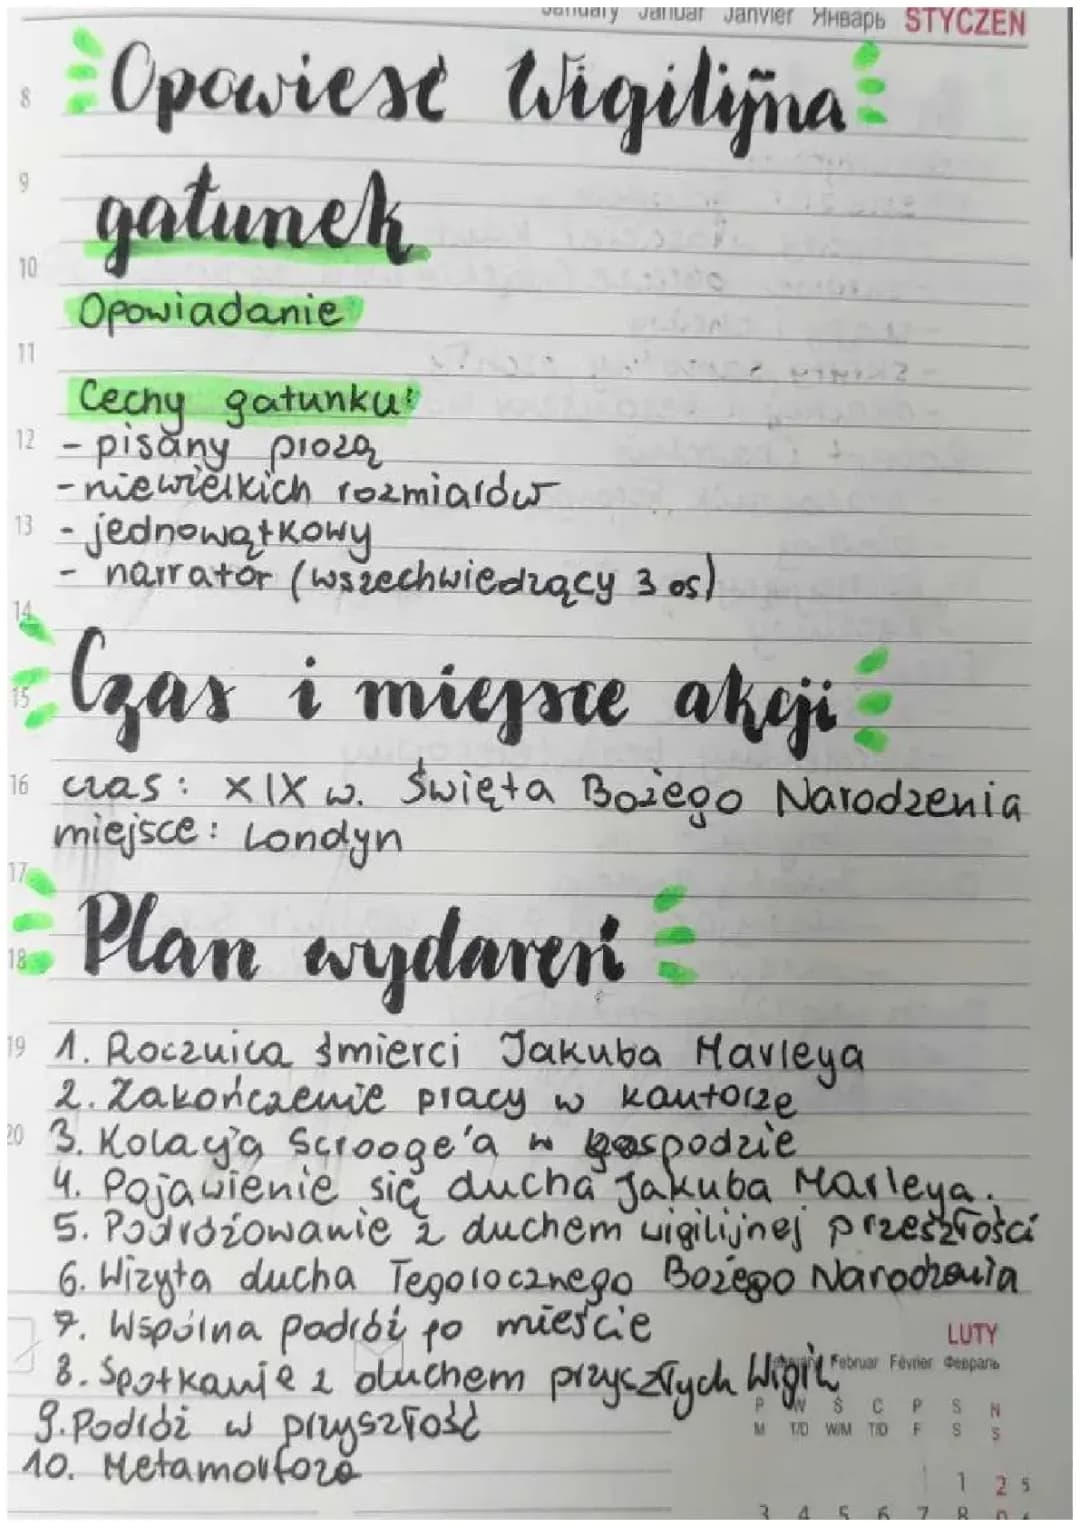 January Januar Janvier Январь STYCZEŃ
Opowieść Wigilijna
8
9
gatunek
10
Opowiadanie
11
Cechy gatunku:
12 - pisany prozą
- niewielkich rozmiarów
13 - jednowątkowy
- narrator (wszechwiedzący 3 os)
14
Czas i miejsce akcji
15
16 czas: XIX w. Święta Bożego Narodzenia
miejsce: Londyn
17
Plan wydareń
18
19 1. Rocznica śmierci Jakuba Marleya
2. Zakończenie pracy w kantorze
20 3. Kolacja Scrooge'a w gospodzie
4. Pojawienie się ducha Jakuba Marleya.
5. Podróżowanie z duchem wigilijnej przeszłości
6. Wizyta ducha Tegorocznego Bożego Narodzenia
7. Wspólna podróż po mieście
LUTY
Februar Février Февраль
8. Spotkanie z duchem przyszłych Wigili
P W Ś C P S N
M T/D W/M T/D F S S
9. Podróż w przyszłość
10. Metamorfoza
1 2 5
3 4 5 6 7 8